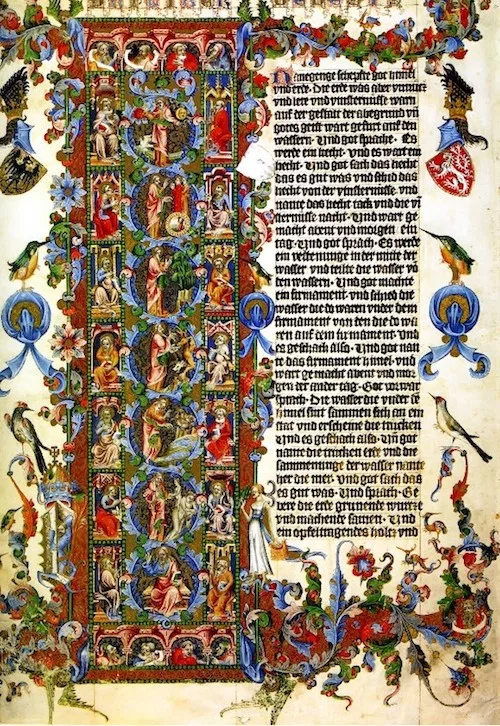 anegenge schepfte got himel
vnd erde. Die erde was aber vnnucz
vnd lere vnd vinsternisse warn
auf der gestalt der abegrund vn̄
gotes geist wart gefurt auf den
wassern. Vnd got sprache. Es
werde ein liecht. vnd es wart ein
liecht. Vnd got sach das liecht
das es gut was vnd schid das
liecht von der vinsternisse. vnd
nante das liecht tack vnd die vi
nsternisse nacht. Vnd wart ge
macht abent vnd morgen ein
tag. Vnd got sprach. Es werde
ein vestenunge in der mitte der
wasser vnd teilte die wasser vō
den wassern. Vnd got machte
ein firmament. vnd schied die
wasser die do waren vnder dem
firmament von den die do wa
ren auf dem firmament. Vnd
es geschach also. Vnd got nan
te das firmament himel. vnd
wart gemacht abent vnd mor
gen der ander tag. Got vorwar
sprach. Die wasser die vnder dē
himel sint sammen sich an ein
stat vnd erscheine die trucken
Vnd es geschach also. Vn̄ got
nante die trucken erde vnd die
sammenunge der wasser nante
her die mer. Vnd got sach das
es gut was. Vnd sprach. Ge
bere die erde grunende wurcze
vnd machende samen. Vnd
ein holcz vnd